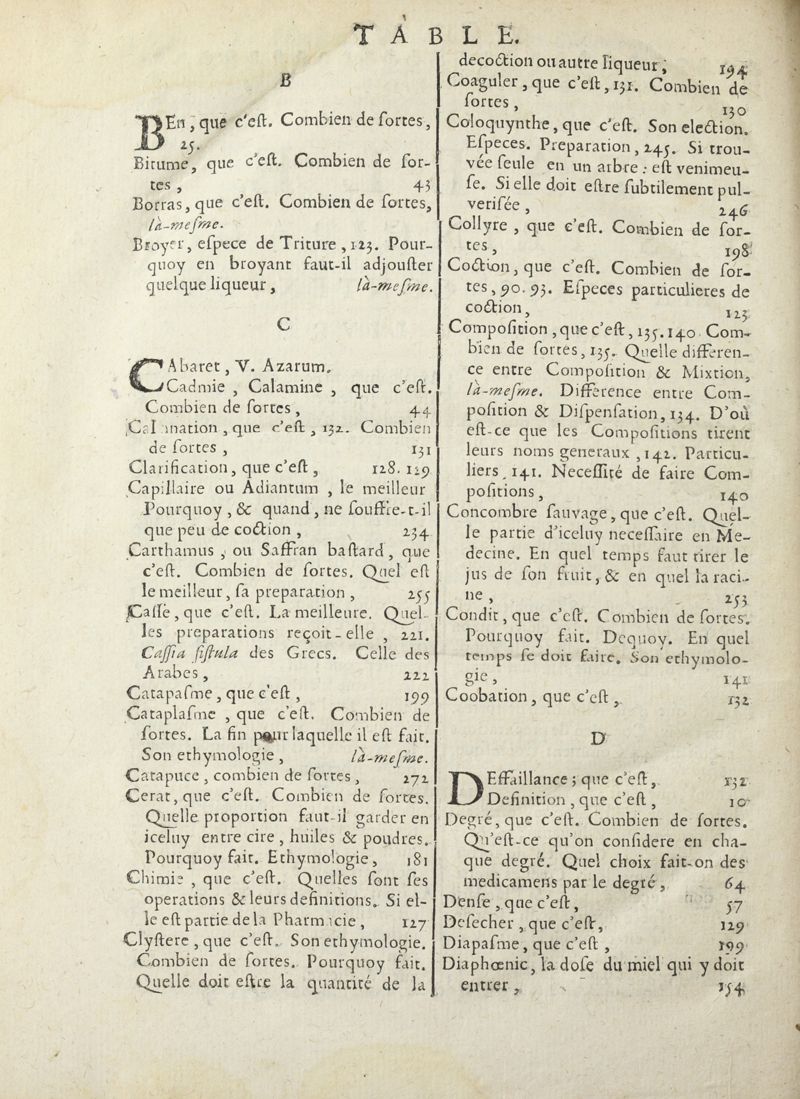 TABLE.
B
BEn, que c'eſt. Combien de ſortes,
25.
Bitume, que c'eſt. Combien de ſor-
tes, 43
Borras, que c'eſt. Combien de ſortes,
là-meſme.
Broyer, eſpece de Triture, 123. Pour-
quoy en broyant faut-il adjouſter
quelque liqueur, là-meſme.
C
CAbaret, V. Azarum.
Cadmie, Calamine, que c'eſt.
Combien de ſortes, 44
Calcination, que c'eſt, 132. Combien
de ſortes, 131
Clarification, que c'eſt, 128. 129
Capillaire ou Adiantum, le meilleur
Pourquoy, & quand, ne ſouffre-t-il
que peu de coction, 234
Carthamus, ou Saffran baſtard, que
c'eſt. Combien de ſortes. Quel eſt
le meilleur, ſa preparation, 255
Caſſe, que c'eſt. La meilleure. Quel-
les preparations reçoit-elle, 221.
Caſſia fiſtula des Grecs. Celle des
Arabes, 222
Catapaſme, que c'eſt, 199
Cataplaſme, que c'eſt. Combien de
ſortes. La fin pour laquelle il eſt fait.
Son ethymologie, là-meſme.
Catapuce, combien de ſortes, 272
Cerat, que c'eſt. Combien de ſortes.
Quelle proportion faut-il garder en
iceluy entre cire, huiles & poudres.
Pourquoy fait. Ethymologie, 181
Chimie, que c'eſt. Quelles ſont ſes
operations & leurs definitions. Si el-
le eſt partie de la Pharmacie, 127
Clyſtere, que c'eſt. Son ethymologie.
Combien de ſortes. Pourquoy fait.
Quelle doit eſtre la quantité de la
decoction ou autre liqueur, 194
Coaguler, que c'eſt, 131. Combien de
ſortes, 130
Coloquynthe, que c'eſt. Son election.
Eſpeces. Preparation, 245. Si trou-
vée ſeule en un arbre: eſt venimeu-
ſe. Si elle doit eſtre ſubtilement pul-
veriſée, 246
Collyre, que c'eſt. Combien de ſor-
tes, 198
Coction, que c'eſt. Combien de ſor-
tes, 90. 93. Eſpeces particulieres de
coction, 123
Compoſition, que c'eſt, 135. 140 Com-
bien de ſortes, 135. Quelle differen-
ce entre Compoſition & Mixtion,
là-meſme. Difference entre Com-
poſition & Diſpenſation, 134. D'où
eſt-ce que les Compoſitions tirent
leurs noms generaux, 142. Particu-
liers, 141. Neceſſité de faire Com-
poſitions, 140
Concombre ſauvage, que c'eſt. Quel-
le partie d'iceluy neceſſaire en Me-
decine. En quel temps faut tirer le
jus de ſon fruit, & en quel la raci-
ne, 253
Condit, que c'eſt. Combien de ſortes.
Pourquoy fait. Dequoy. En quel
temps ſe doit faire. Son ethymolo-
gie, 141
Coobation, que c'eſt, 132
D
DEffaillance; que c'eſt, 132
Definition, que c'eſt, 10
Degré, que c'eſt. Combien de ſortes.
Qu'eſt-ce qu'on conſidere en cha-
que degré. Quel choix fait-on des
medicamens par le degré, 64
Denſe, que c'eſt, 57
Defecher, que c'eſt, 129
Diapaſme, que c'eſt, 199
Diaphœnic, la doſe du miel qui y doit
entrer, 154